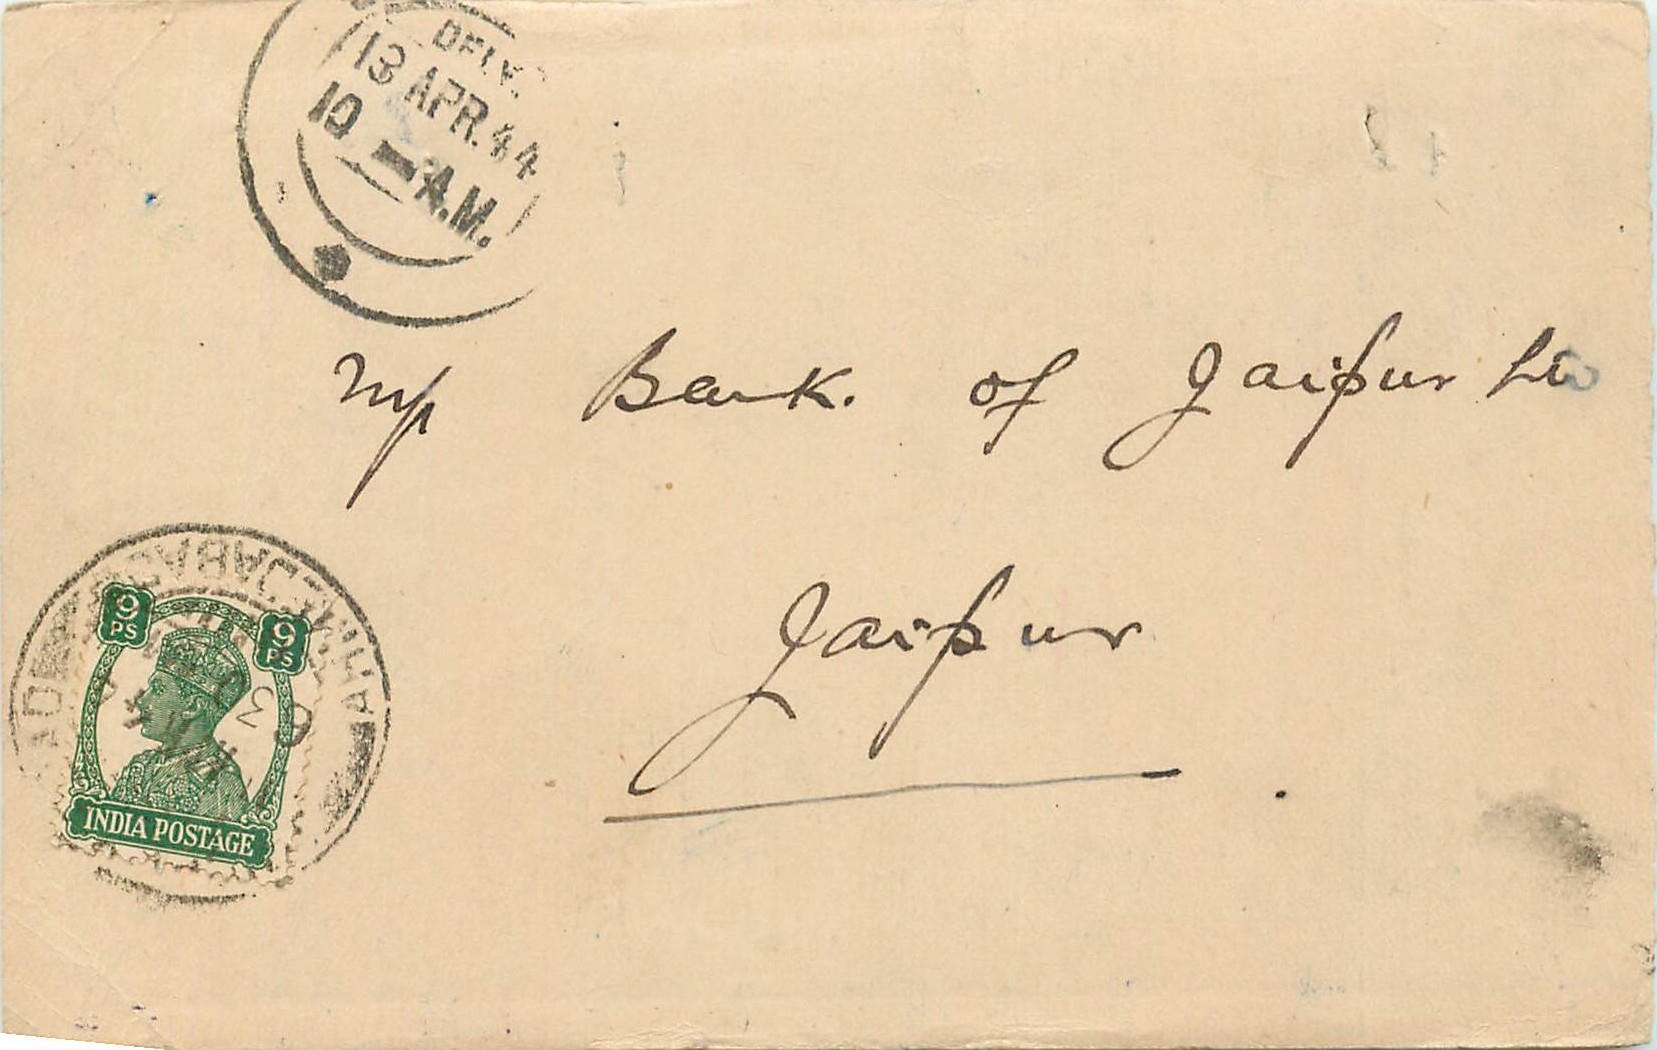 DELY.
13 APR.44
10 A.M.
M/s Bank. of Jaipur Ltd
Jaipur
AHMEDABAD
9 PS
9 PS
INDIA POSTAGE